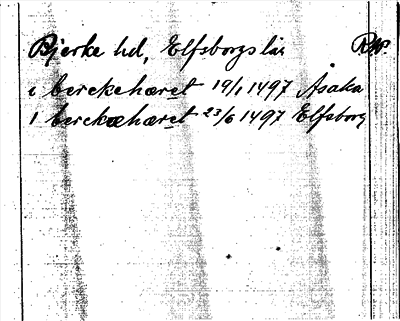 Bjerke hd, Elfsborgs län
i berckehæret 19/1 1497 Åsaka
I berckæhæret 23/6 1497 Elfsborg